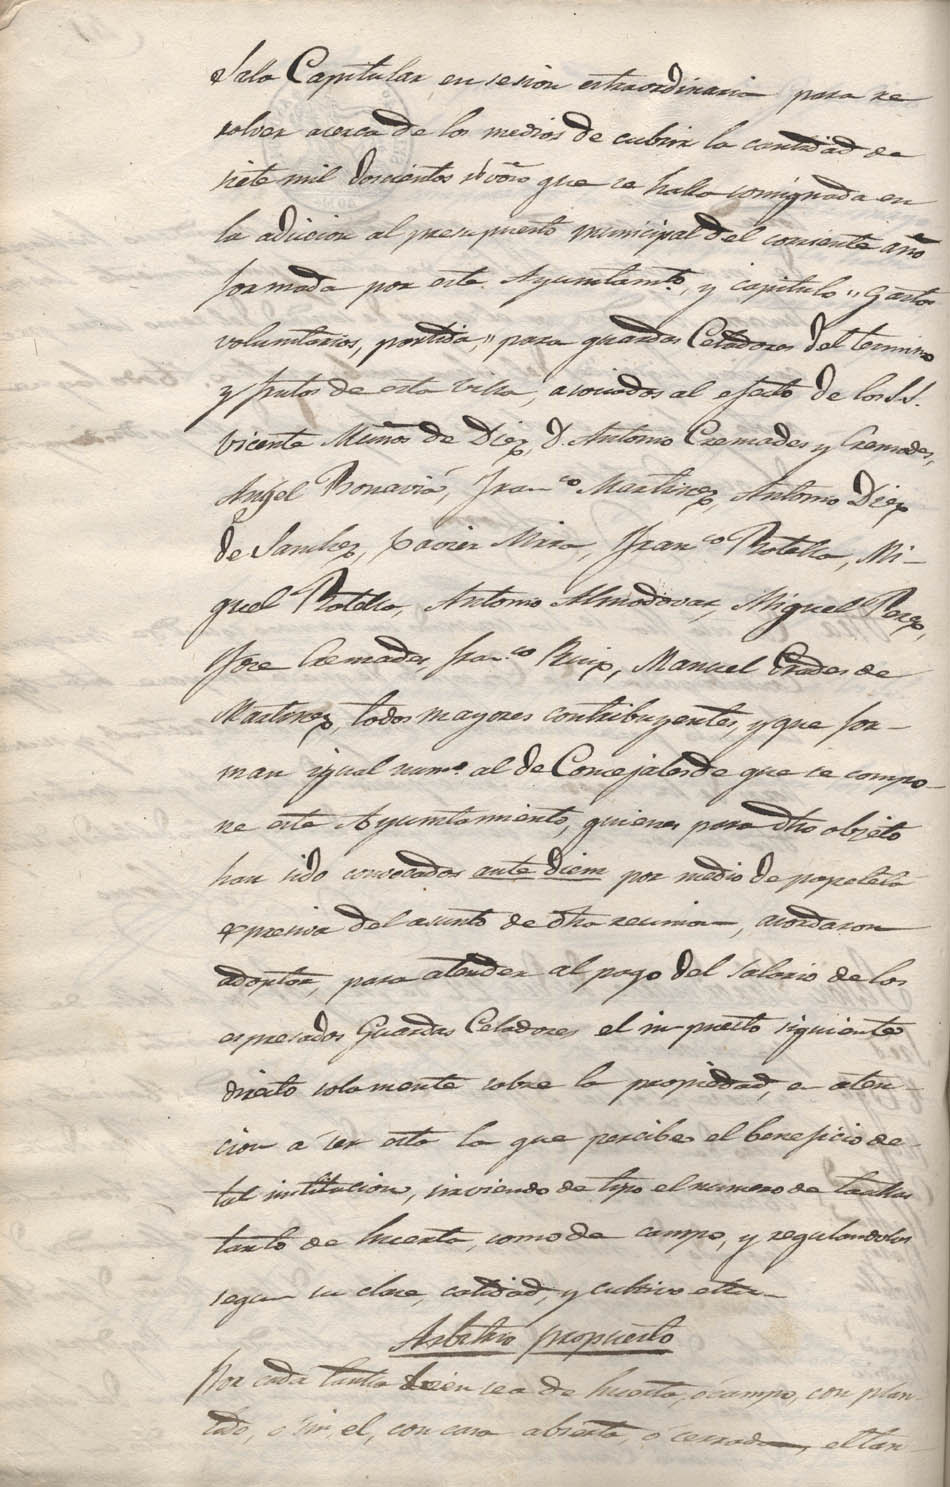 Sala Capitular, en sesion estraordinaria para re
solver acerca de los medios de cubrir la cantidad de
siete mil doscientos r.^s vòn que se halla consignada en
la adicion al presupuesto municipal del corriente año
formada por este Ayuntam.^to, y capitulo "Gastos
voluntarios, partida," para guardas Celadores del termino
y frutos de esta Villa, asociados al efecto de los S.S.
Vicente Muños de Diez, D. Antonio Cremades y Cremades,
Angel Bonaviá, Fran.^co Martinez, Antonio Diez
de Sanchez, Xavier Mira, Fran.^co Botella, Mi-
guel Botella, Antonio Almodovar, Miguel Perez,
José Cremades, Fran.^co Ruiz, Manuel Prades de
Martinez, todos mayores contribuyentes, y que for-
man igual num.^o al de Concejales de que se compo-
ne este Ayuntamiento, quienes para dho objeto
han sido convocados ante diem por medio de papeleta
espresiva del asunto de dha reunion, acordaron
adoptar, para atender al pago del salario de los
espresados Guardas Celadores, el impuesto siguiente
directo solamente sobre la propiedad, en aten-
cion a ser esta la que percibe el beneficio de
tal institucion, sirviendo de tipo el numero de taullas
tanto de huerta, como de campo, y regulandolas
segun su clase, calidad, y cultivo
Arbitrio propuesto
Por cada taulla bien sea de huerta, o campo, con plan-
tado, o sin el, con casa abierta, o cerrada, el tan-